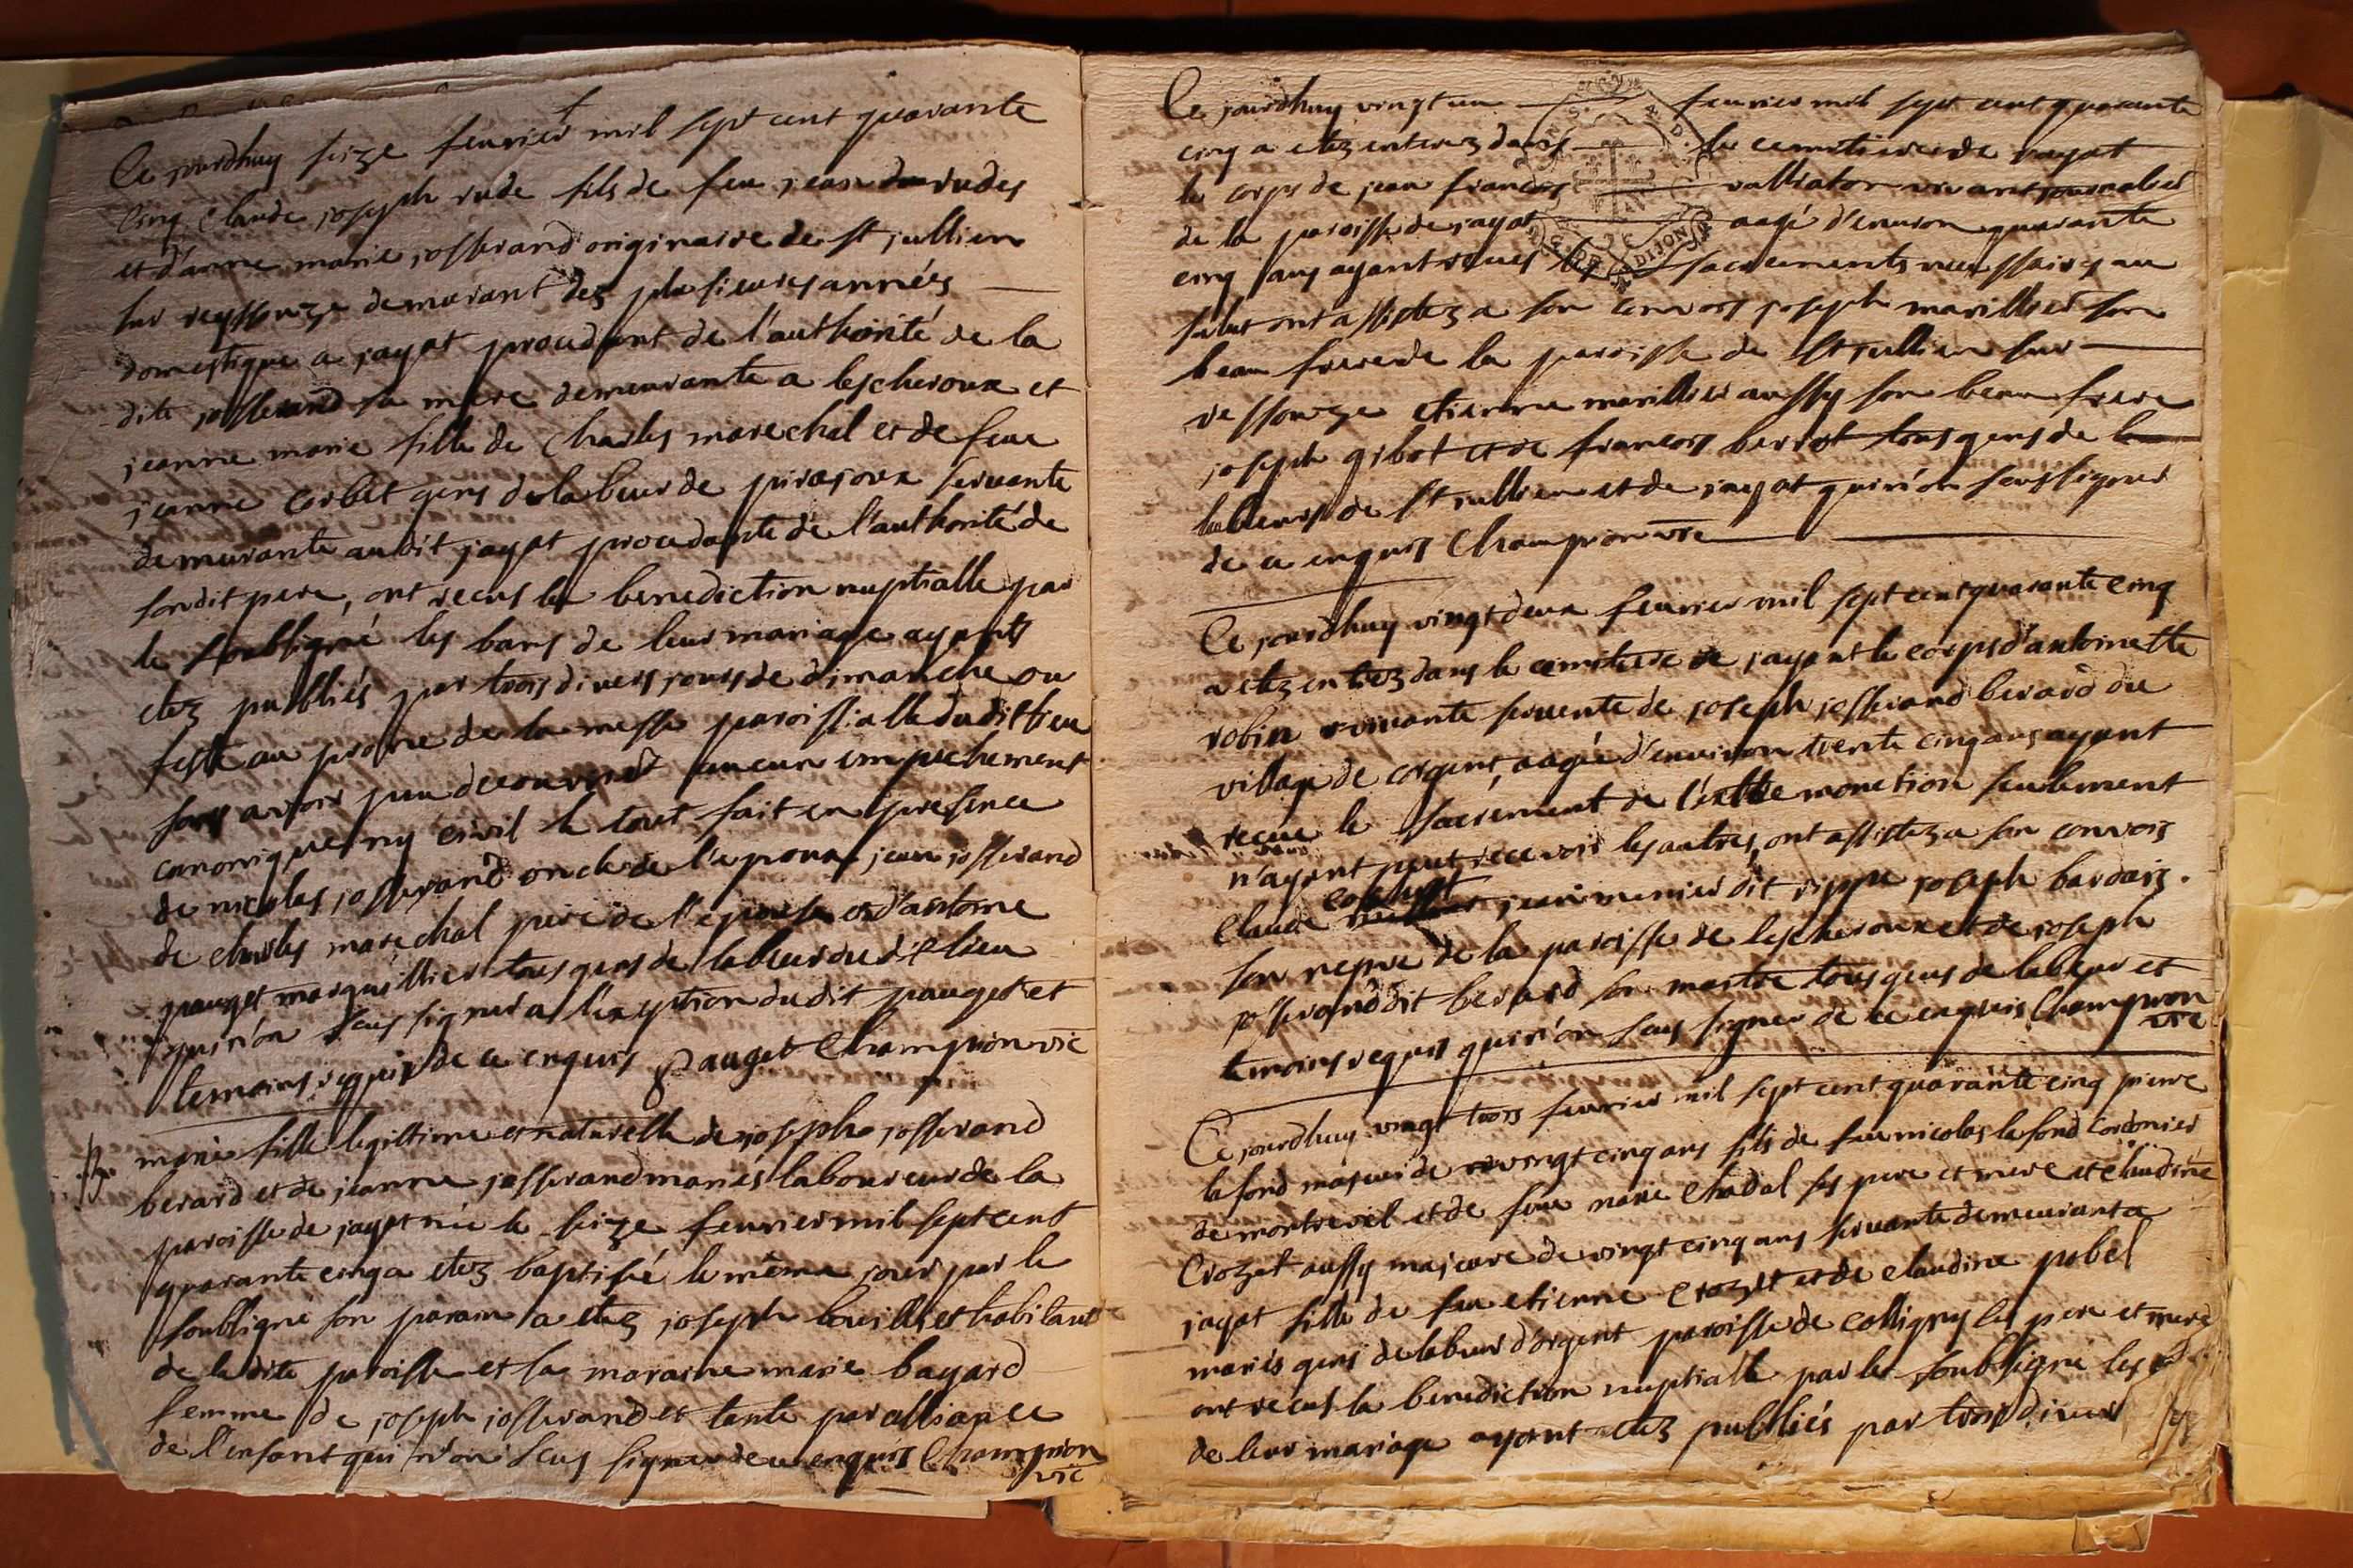 Ce jourdhuy seize feurier mil sept cent quarante
cinq claude joseph rude fils de feu jean rudes
et d'anne marie josserand originaire de st jullien
sur reyssouze demeurant dez plusieures années
domestique a jayat procedant de l'authorité de la
dite josserand sa mere demeurante a lescheroux et
jeanne marie fille de Charles marechal et de feue
jeanne corbet gens de labeur de pirajoux seruante
demeurante audit jayat procedante de l'authorité de
sondit pere, ont recus la benediction nuptialle par
le soubsigné les bans de leur mariage ayants
etez publiés par trois divers jours de dimanche ou
feste au prosne de la messe paroissialle dudit lieu
sans avoir peu decouvrir aucun empechement
canonique ny civil le tout fait en presence
de nicolas josserand oncle de l'epoux jean josserand
de charles marechal pere de l'epouse et d'antoine
pauget marguillier tous gens de labeur dudit lieu
qui n'on sceus signer a l'exeption dudit pauget et
temoins requis de ce enquis Pauget Champion vic
marie fille legittime et naturelle de joseph josserand
berard et de jeanne josserand mariés laboureur de la
paroisse de jayat née le seize feurier mil sept cent
quarante cinq a etez baptisé le même jour par le
soubsigné son parain a etez joseph habitant
de ladite paroisse et sa maraine marie bayard
femme de joseph josserand et tante par alliance
de l'enfant qui n'on sceus signer de ce enquis Champion
vic
Ce jourdhuy vingt un feurier mil sept cent quarante
cinq a etez enterez dans le cemitiere de jayat
le corps de jean francois vivant journalier
de la paroisse de jayat aagé d'enuiron quarante
cinq ans ayant receus les sacrements necessaires au
salut ont assistez a son convois joseph marillier son
beau frere de la paroisse de st jullien sur
ressouze etienne marillier aussy son beau frere
joseph gibot et de francois berrot tous gens de
labeurs de st jullien et de jayat qui n'on sceus signer
de ce enquis Champion vic
Ce jourdhuy vingt deux feurier mil sept cent quarante cinq
a etez enterez dans le cemitiere de jayat le corps d'antoinette
robin vivante seruente de joseph josserand berard du
village de corgent, aagée d'environ trente cinq ans ayant
recue le sacrement de l'extreme onction seulement
n'ayant peut recevoir les autres, ont assistez a son convois
claude jean munier dit rippe joseph bardaiz
son nepueu de la paroisse de lescheroux et de joseph
josserand dit berard son maitre tous gens de labeur et
temoins requis qui n'on sceus signer de ce enquis Champion
vic
Ce jourdhuy vingt trois feurier mil sept cent quarante cinq pierre
lafond majeur de vingt cinq ans fils de feu nicolas lafond cordonier
de montrevel et de feue marie chadal ses pere et mere et claudine
Crozet aussy majeure de vingt cinq ans seruante demeurant a
jayat fille de feu etienne Crozet et de claudine pobel
mariés gens de labeur d'orgent paroisse de colligny ses pere et mere
ont recus la benediction nuptialle par le soubsigné les
de leur mariage ayant etez publiés par trois divers
DIJON